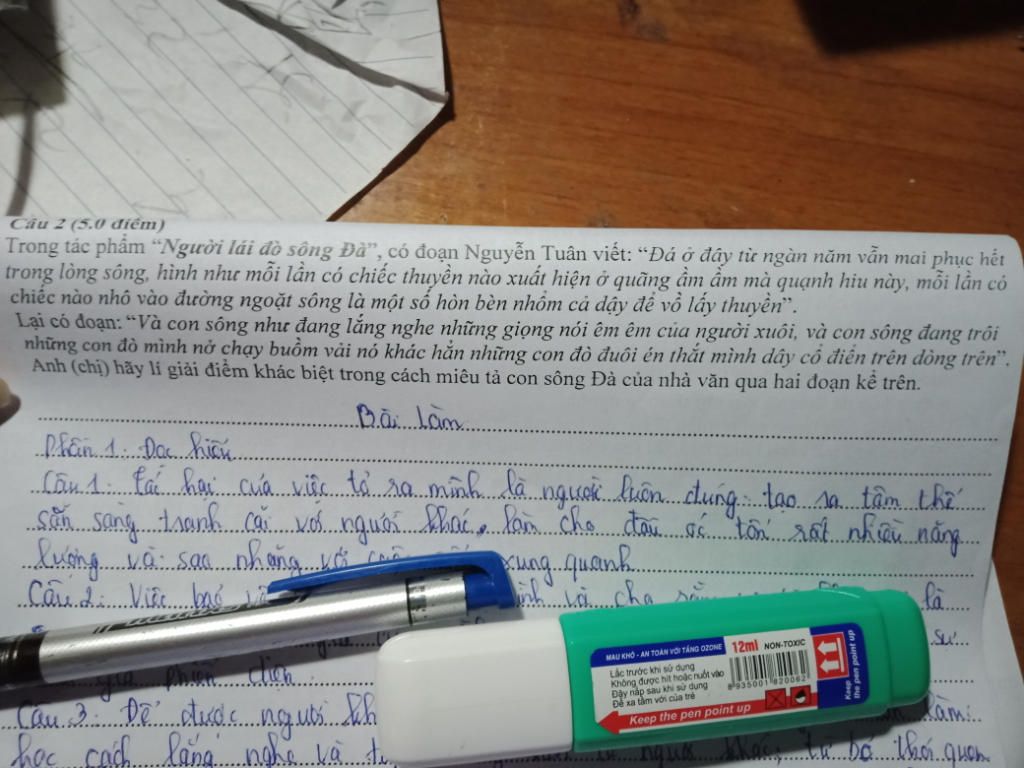 Câu 2 (5.0 điểm)
Trong tác phẩm “Người lái đò sông Đà”, có đoạn Nguyễn Tuân viết: “Đá ở đây từ ngàn năm vẫn mai phục hết
trong lòng sông, hình như mỗi lần có chiếc thuyền nào xuất hiện ở quãng ầm ầm mà quạnh hiu này, mỗi lần có
chiếc nào nhô vào đường ngoặt sông là một số hòn bèn nhổm cả dậy để vồ lấy thuyền”.
Lại có đoạn: “Và con sông như đang lắng nghe những giọng nói êm êm của người xuôi, và con sông đang trôi
những con đò mình nở chạy buồm vải nó khác hẳn những con đò đuôi én thắt mình dây cổ điển trên dòng trên”.
Anh (chị) hãy lí giải điểm khác biệt trong cách miêu tả con sông Đà của nhà văn qua hai đoạn kể trên.
Bài làm
Phần 1: Đọc hiểu
Câu 1: Tác hại của việc tỏ ra mình là người luôn đúng: tạo ra tâm thế
sẵn sàng tranh cãi với người khác, làm cho đầu óc tốn rất nhiều năng
lượng và sao nhãng với xung quanh
Câu 2: Việc là
sự
phiền
Câu 3: Để được người làm:
học cách lắng nghe và người khác, từ bỏ thói quen
MAU KHÔ - AN TOÀN VỚI TẦNG OZONE
12ml NON-TOXIC
Lắc trước khi sử dụng
Không được hít hoặc nuốt vào
Đậy nắp sau khi sử dụng
Để xa tầm với của trẻ
8935001820062
Keep the pen point up
Keep the pen point up